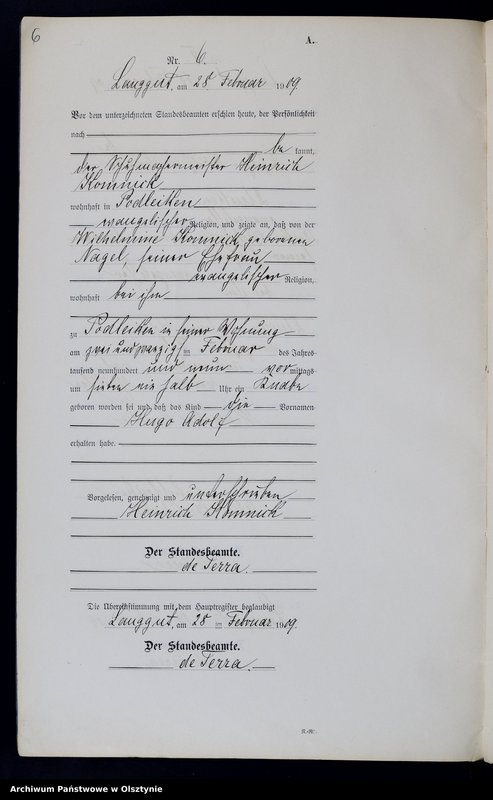 6
A.
Nr. 6.
Langgut, am 28 Februar 1909.
Vor dem unterzeichneten Standesbeamten erschien heute, der Persönlichkeit
nach
be kannt,
der Schuhmachermeister Heinrich
Komnick
wohnhaft in Podleiken
evangelischer Religion, und zeigte an, daß von der
Wilhelmine Komnick geborenen
Nagel, seiner Ehefrau
evangelischer Religion,
wohnhaft bei ihm
zu Podleiken in seiner Wohnung
am zwei und zwanzig im Februar des Jahres
tausend neunhundert und neun vor mittags
um sieben ein halb Uhr ein Knabe
geboren worden sei und daß das Kind die Vornamen
Hugo Adolf
erhalten habe.
Vorgelesen, genehmigt und unterschrieben
Heinrich Komnick
Der Standesbeamte.
de Terra.
Die Übereinstimmung mit dem Hauptregister beglaubigt
Langgut, am 28 im Februar 1909.
Der Standesbeamte.
de Terra.
Archiwum Państwowe w Olsztynie